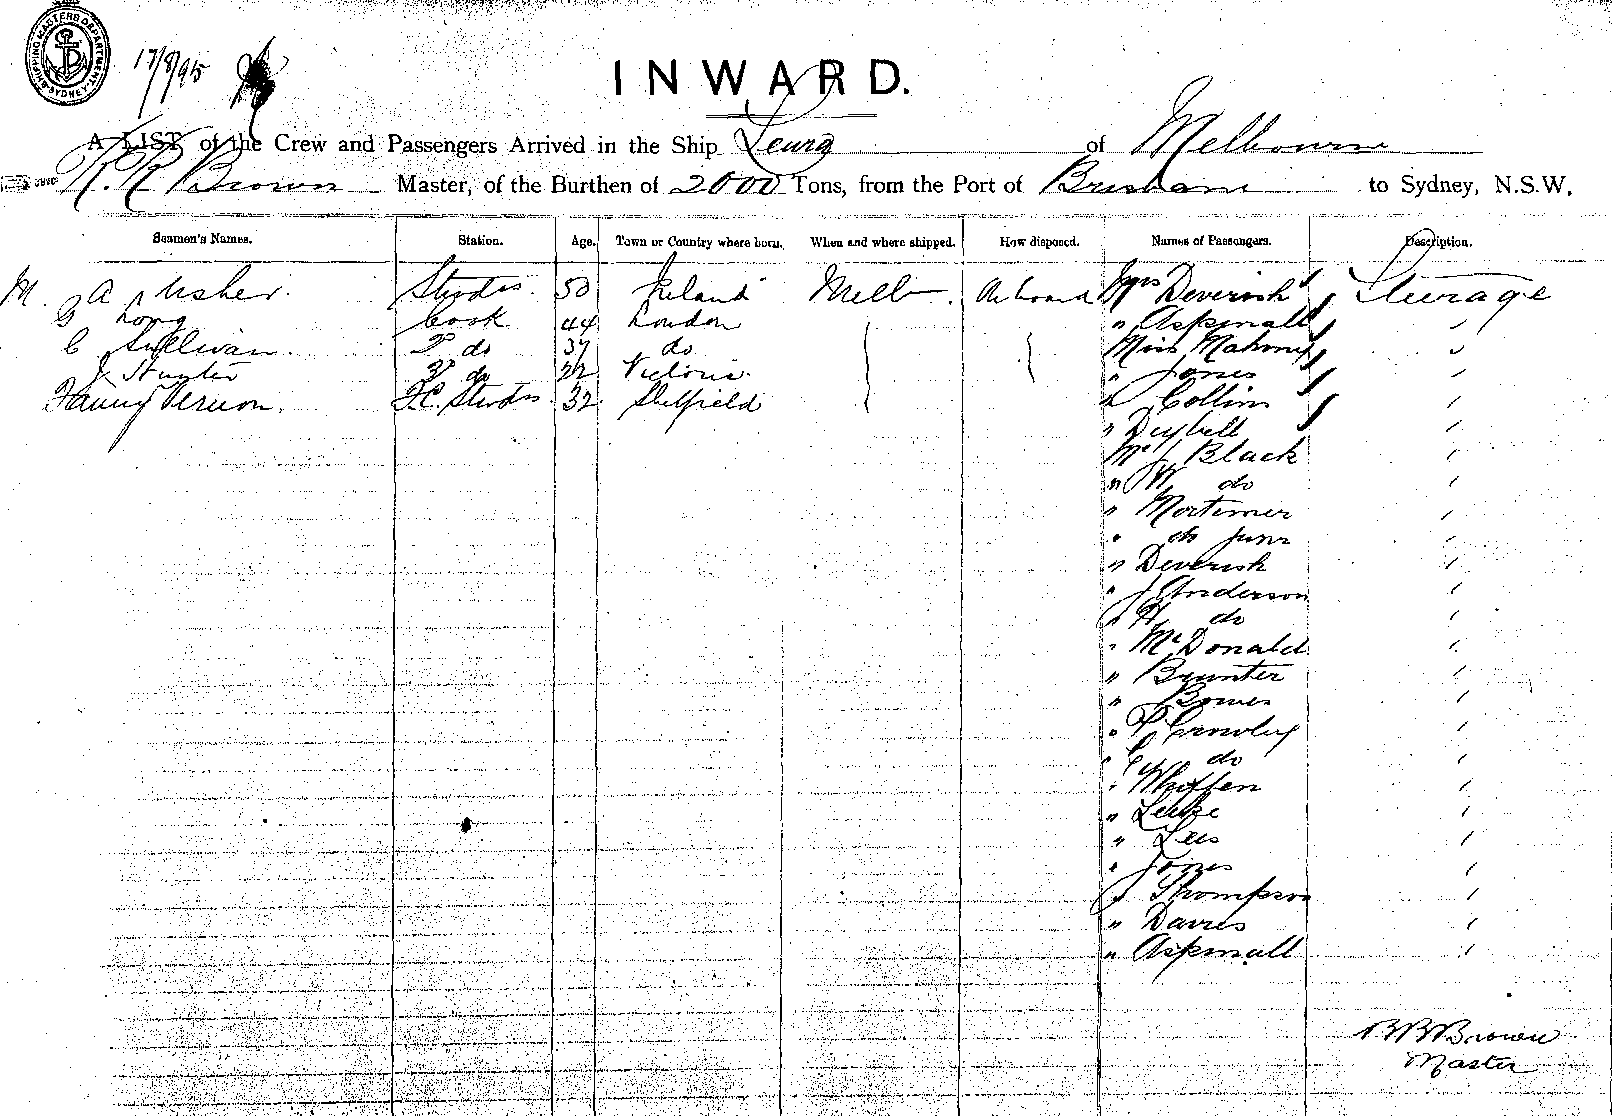 SHIPPING MASTERS DEPARTMENT SYDNEY
17/8/95
INWARD.
A LIST of the Crew and Passengers Arrived in the Ship Leura of Melbourne
R. R Brown Master, of the Burthen of 2000 Tons, from the Port of Brisbane to Sydney, N.S.W.
Seamen's Names. Station. Age. Town or Country where born. When and where shipped. How disposed. Names of Passengers. Description.
M. A Usher. Stwdss 50 Ireland Melb. On board Mrs Deverish Steerage
G Long Cook 44 London " Aspinall "
C Sullivan. 2 do 37 do Miss Mahony "
J. Hunter 3 do 22 Victoria. " Jones "
Fanny Vernon. F.C. Stwdss 32 Sheffield " Collins "
" "
Mr J Black "
" W do "
" Mortimer "
" do Junr "
" Deverish "
" J Anderson "
" H do "
" McDonald "
" Brunter "
" "
" P. Crowley "
" C do "
" Whitten "
" "
" Lees "
" Jones "
" Thompson "
" Davies "
" Aspinall "
Brown
Master